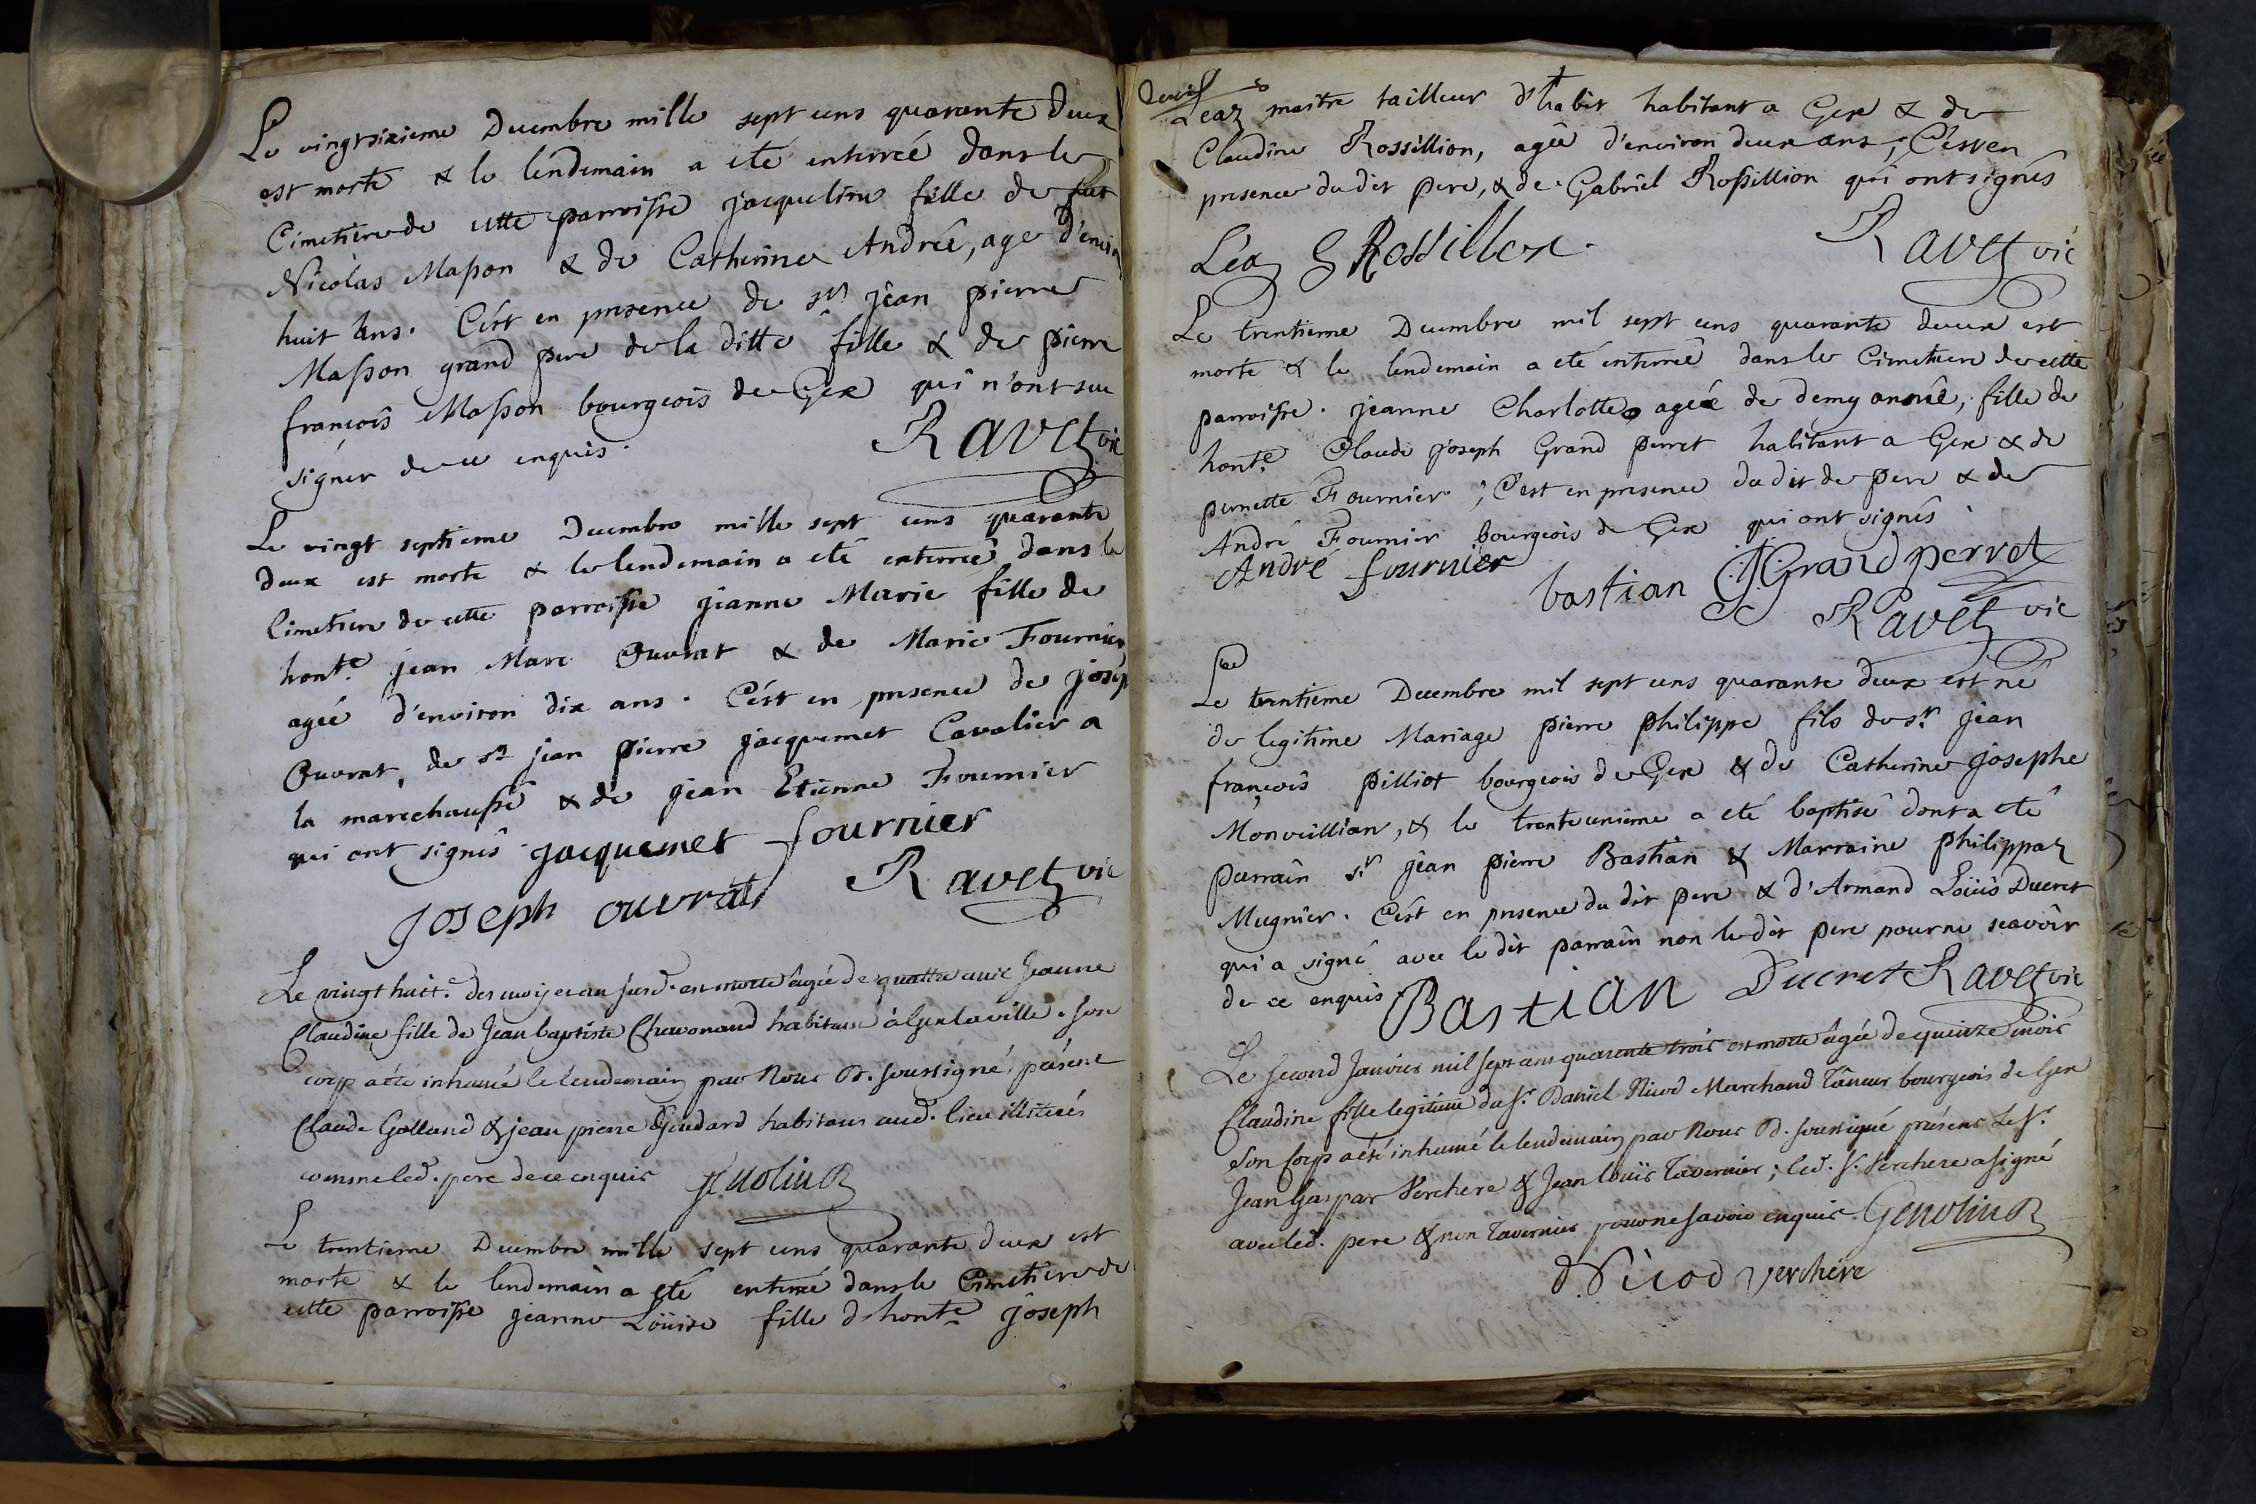 Le vingtsixieme Decembre mille sept cens quarante deux
est morte & le lendemain a eté enterreé dans le
Cimetiere de cette parroisse jacqueline fille de fut
Nicolas Masson & de Catherine Andrée, age d'environ
huit ans. C'ést en presence de sr. jean pierre
Masson grand pere de la ditte fille & de pierre
françois Masson bourgeois de Gex qui n'ont sue
signer de ce enquis.
Ravet vic
Le vingt septieme Decembre mille sept cens quarante
deux est morte & le lendemain a eté enterreé dans le
Cimetiere de cette parroisse jeanne Marie fille de
honte. jean Marc Ouvrat & de Marie Fournier
ageé d'environ dix ans. C'ést en presence de josep
Ouvrat, de sr. jean pierre jacquemet Cavalier a
la marechaussé & de jean Etienne Fournier
qui ont signés. jacquemet fournier
joseph ouvrat Ravet vic
Le vingt huit.e des mois et an susd. est morte âgée de quattre ans Jeanne
Claudine fille de Jean baptiste Chavonand habitant à Gex la ville. Son
corp a été inhumé le lendemain par Nous R. soussigné, présent
Claude Golland & jean pierre Goudard habitans aud. lieu illiterés
comme led. pere de ce enquis Genolin R
Le trentieme Decembre mille sept cens quarante deux est
morte & le lendemain a eté enterreé dans le Cimetiere de
cette parroisse jeanne Loüise fille d honte. joseph
Leaz maitre tailleur d'habit habitant a Gex & de
Claudine Rossillion, ageê d'environ deux ans; C'est en
presence du dit pere, & de Gabriel Rossillion qui ont signés
Léaz G Rossillon. Ravet vic
Le trentieme Decembre mil sept cens quarante deux est
morte & le lendemain a eté enterreé dans le Cimetiere de cette
parroisse. jeanne Charlotte ageé de demy année, fille de
honte. Claude joseph Grand perret habitant a Gex & de
pernette Fournier; C'est en presence du dit de pere & de
André Fournier bourgeois de Gex qui ont signés.
André fournier bastian CJ Grandperret
Ravet vic
Le
Le trentieme Decembre mil sept cens quarante deux est né
de legitime Mariage pierre philippe fils de sr. jean
françois pilliot bourgeois de Gex & de Catherine josephe
Monveillian, & le trente unieme a eté baptisé dont a eté
parrain sr. jean pierre Bastian & Marraine philippaz
Mugnier. C'ést en presence du dit pere & d'Armand Loüis Ducret
qui a signé avec le dit parrain non le dit pere pour ne scavoir
de ce enquis. Bastian Ducret Ravet vic
Le second Janvier mil sept cens quarente trois est morte âgée de queinze mois
Claudine fille legitime du Sr. Daniel Nicod Marchand Tâneur bourgeois de Gex
Son corp a été inhumé le lendemain par Nous R. soussigné présens Le Sr.
Jean Gaspar Verchere & Jean louis Tavernier; led. Sr. Verchere a signé
avec led. pere & non Tavernier pour ne savoir enquis. Genolin R
d. Nicod verchere